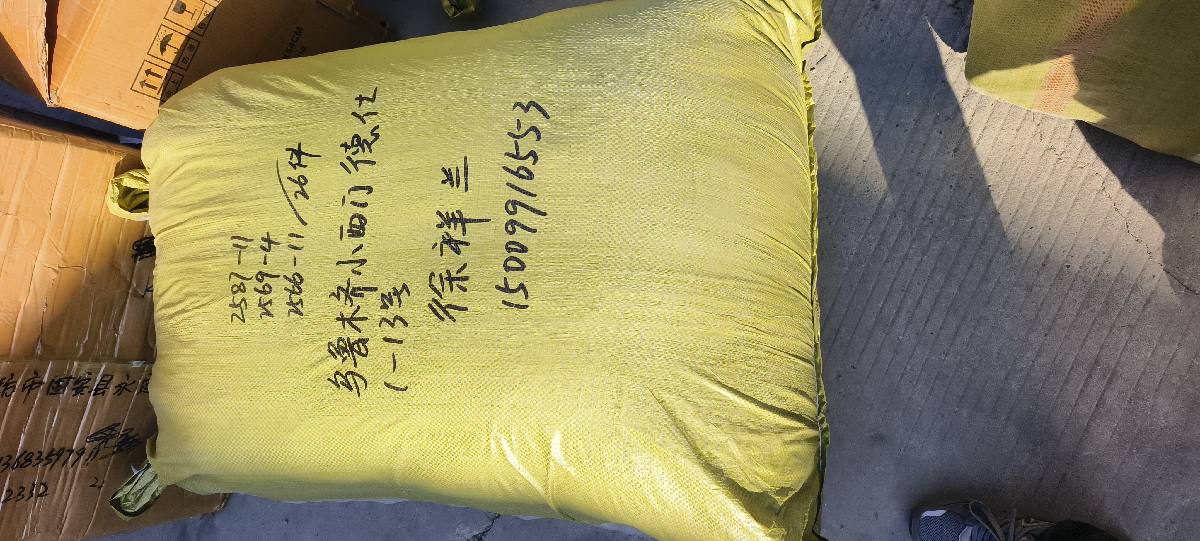 2587-11
2569-4
2566-11/26件
乌鲁木齐小西门德仕
1-13号
徐祥兰
15009916553
市固安县永
2332